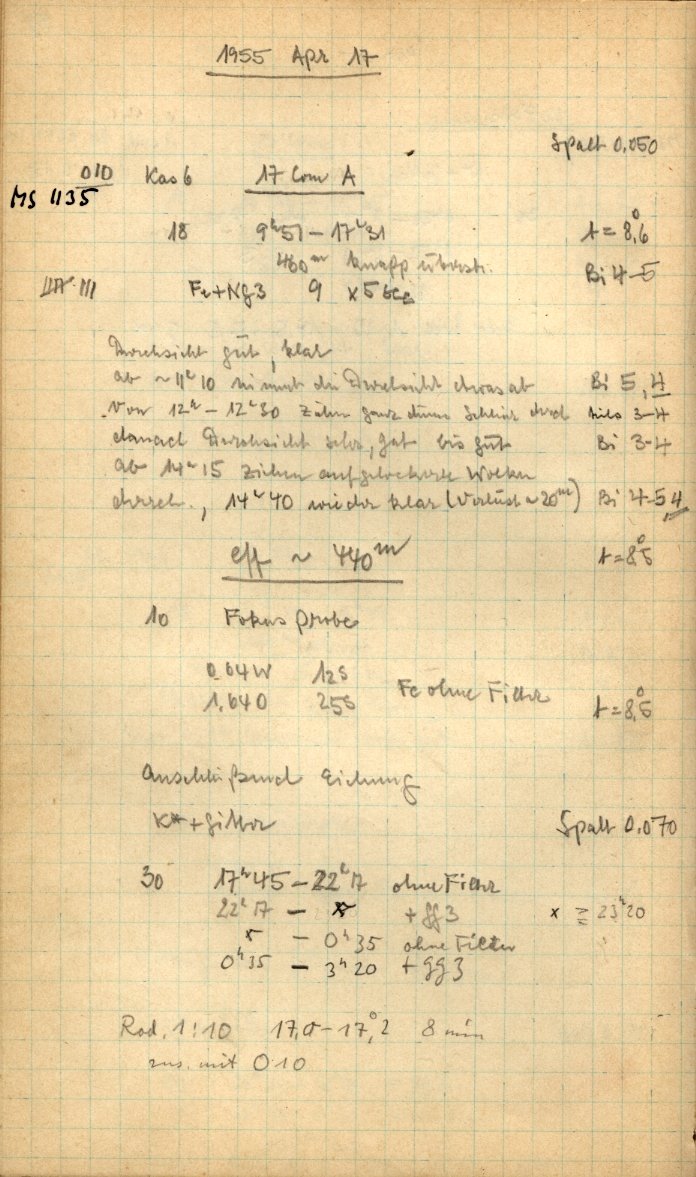 1955 Apr 17
Spalt 0,050
010 Kas 6 17 Com A
MS 1135
18 9h51 – 17h31 t = 8,6°
460m knapp überst. Bi 4-5
III Fe+Ng3 9 x 5 sec
Durchsicht gut, klar
ab ~ 11h10 nimmt die Durchsicht etwas ab Bi 5,4
von 12h – 12h30 ziehn ganz dünne Schlier durch 3-4
danach Durchsicht sehr, gut bis gut Bi 3-4
ab 14h15 ziehen aufgelockerte Wolken
durch., 14h40 wieder klar (Verlust ~ 20m) Bi 4-5,4
eff ~ 440m t = 8,5°
10 Fokusprobe
0,64W 12s
1,640 25s Fe ohne Filter t = 8,5°
Anschließend Eichung
K*+Gitter Spalt 0.070
30 17h45 – 22h17 ohne Filter
22h17 – x + gg3 x ≥ 23h20
x – 0h35 ohne Filter
0h35 – 3h20 + gg3
Rod. 1:10 17,0 – 17,2° 8 min
zus. mit 010